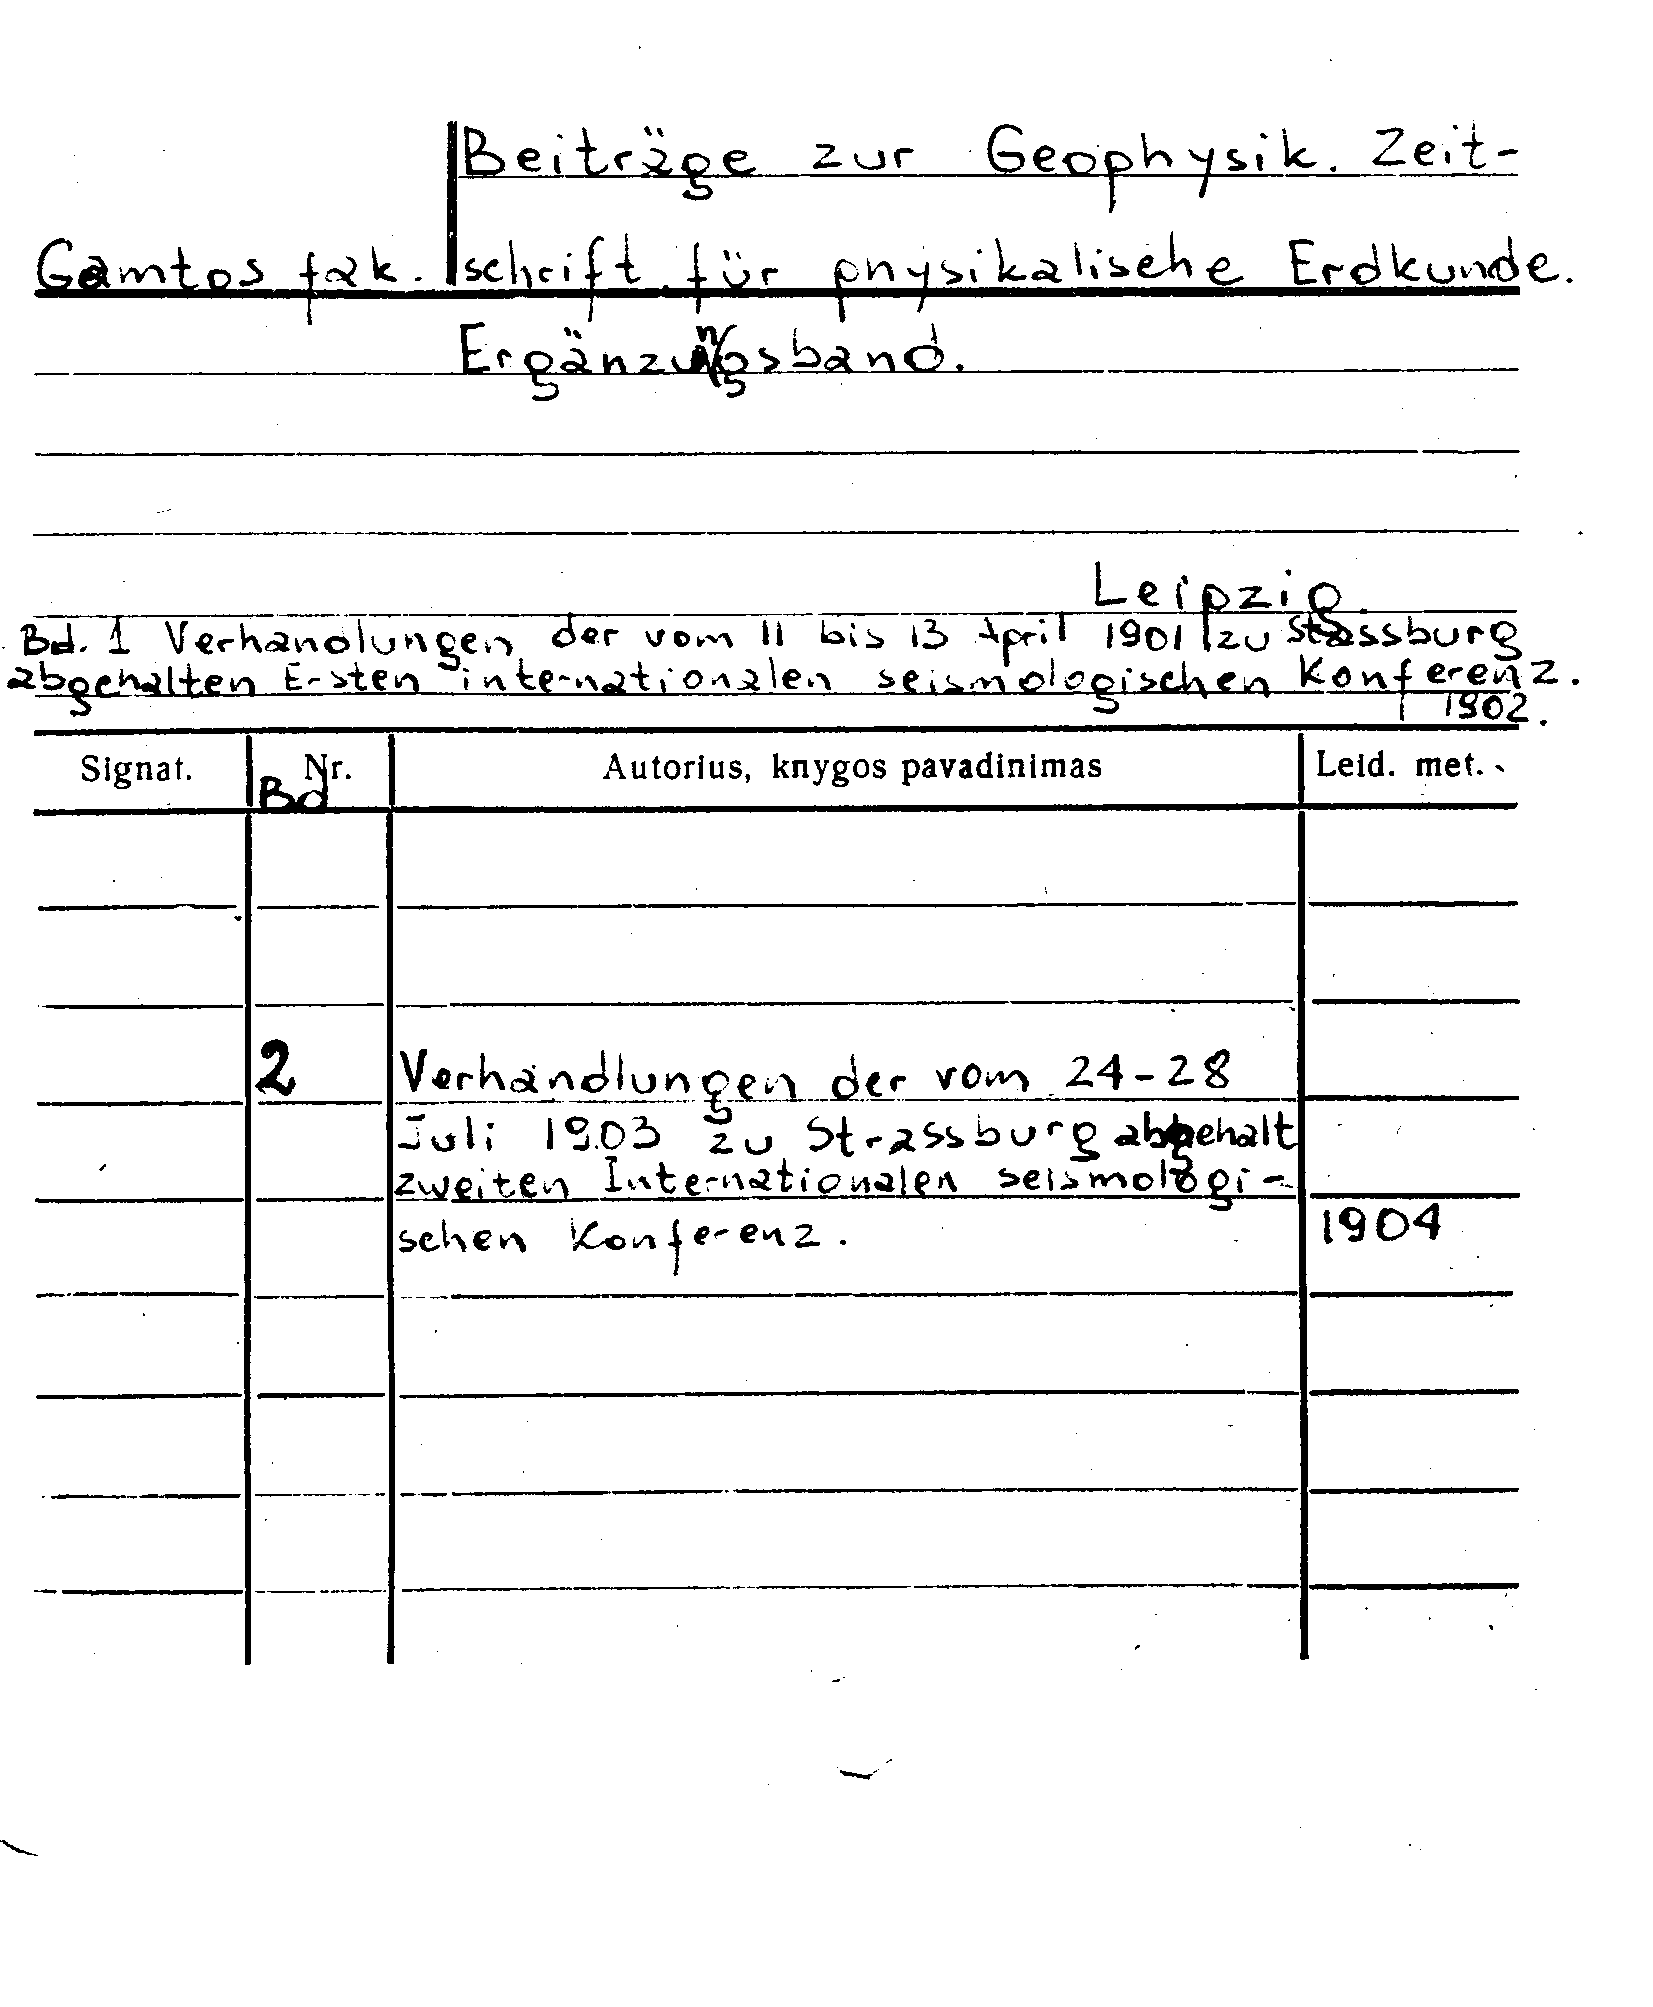 Beiträge zur Geophysik. Zeit-
Gamtos fak. schrift für physikalische Erdkunde.
Ergänzungsband.
Leipzig.
Bd. 1 Verhandlungen der vom 11 bis 13 April 1901 zu Strassburg
abgehalten Ersten internationalen seismologischen Konferenz.
1902.
Signat. Bd Nr. Autorius, knygos pavadinimas Leid. met.
2 Verhandlungen der vom 24-28
Juli 1903 zu Strassburg abgehalt
zweiten Internationalen seismologi-
schen Konferenz. 1904